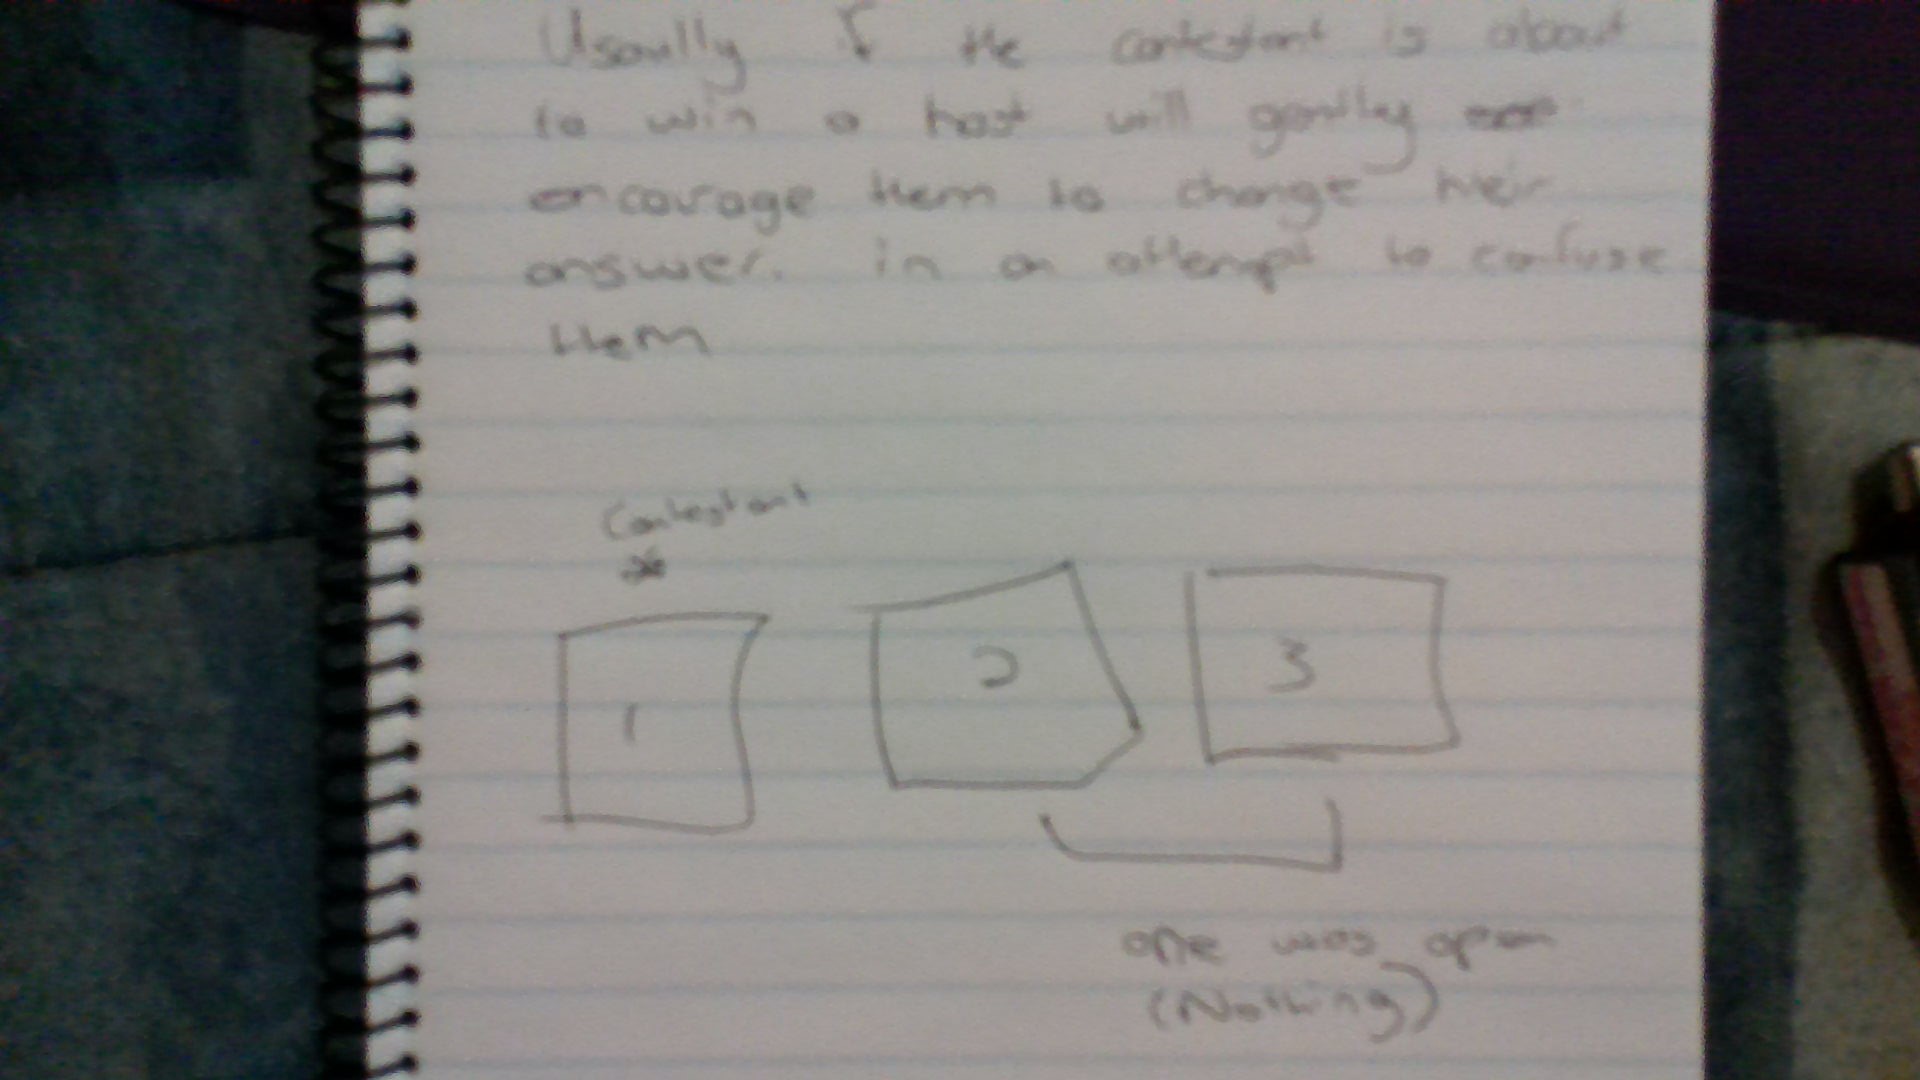 Usaully if the contestant is about
to win a host will gently
encourage them to change their
answer. in an attempt to confuse
them
Contestant
1 2 3
one was open
(Nothing)